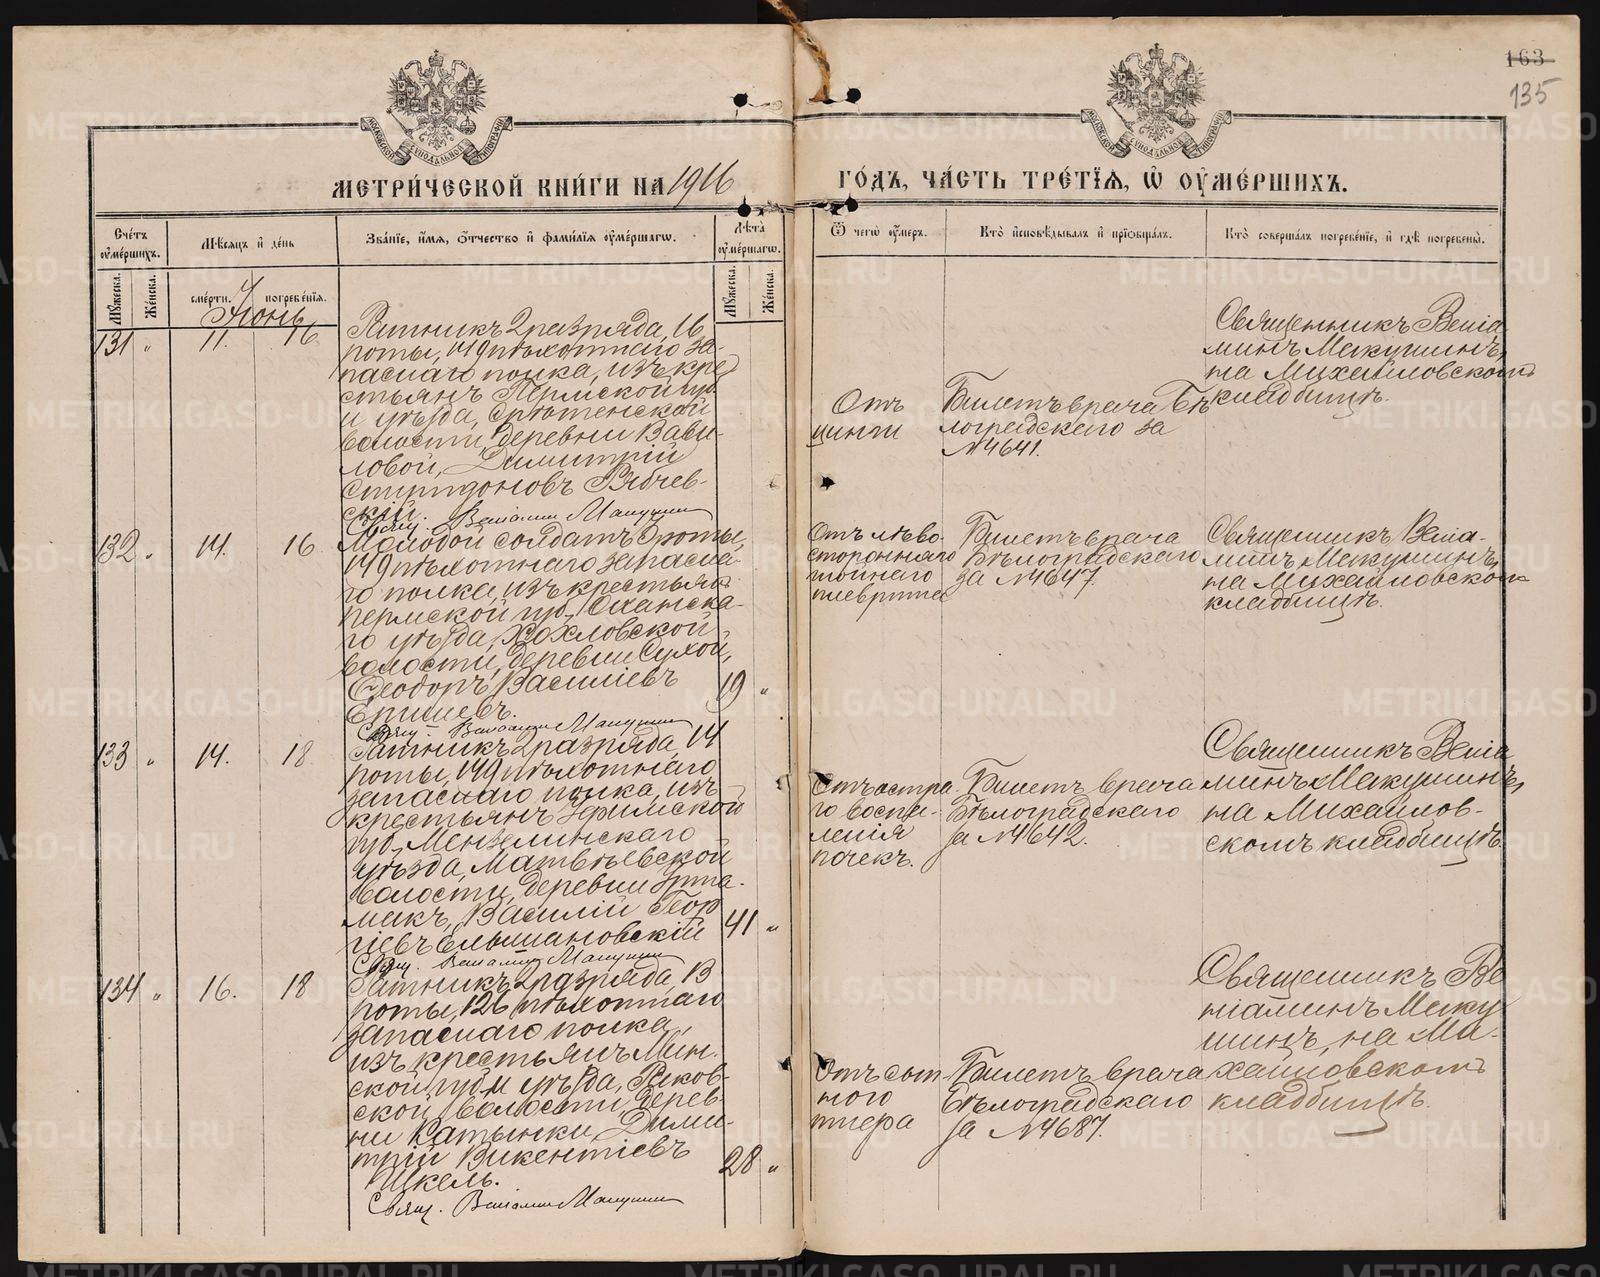 163
135
МЕТРИ́ЧЕСКОЙ КНИ́ГИ НА 1916
ГО́ДЪ, ЧА́СТЬ ТРЕ́ТІѦ, Ѽ ОУМЕ́РШИХЪ.
Сче́тъ оуме́ршихъ.
Мѣ́сяцъ и де́нь
Зва́ніе, и́мя, о́тчество и фами́лія оуме́ршагѡ.
Лѣ́та оуме́ршагѡ.
Ѿ чегѡ̀ оу́меръ.
Кто̀ исповѣ́дывалъ и пріѡбща́лъ.
Кто̀ соверша́лъ погребе́ніе, и гдѣ̀ погребены̀.
Мꙋ́жеска.
Же́нска.
сме́рти.
погребе́нія.
Мꙋ́жеска.
Же́нска.
Іюнь
131 " 11. 16
Ратникъ 2 разряда, 16
роты, 149 пѣхотнаго за-
паснаго полка, изъ кре
стьянъ Пермской губ.
и уѣзда, Срѣтенской
волости, деревни Вави-
ловой, Димитрій
Спиридоновъ Рябчев-
скій.
Свящ. Веніамин Макушин
Отъ
цинги
Билетъ врача Бѣ
лоградскаго за
№ 4641.
Священникъ Веніа
минъ Макушинъ,
на Михайловскомъ
кладбищѣ.
132 " 14. 16
Молодой солдатъ роты,
149 пѣхотнаго запасна-
го полка, изъ крестьянъ
Пермской губ., Оханска-
го уѣзда, Хохловской
волости, деревни Сухой,
Ѳеодоръ Васильевъ
19 "
Свящ. Веніамин Макушин
Отъ лѣво-
сторонняго
гнойнаго
плеврита
Билетъ врача
Бѣлоградскаго
за № 4647.
Священникъ Веніа-
минъ Макушинъ,
на Михайловскомъ
кладбищѣ.
133 " 14. 18
Ратникъ 2 разряда, 14
роты, 149 пѣхотнаго
запаснаго полка, изъ
крестьянъ Уфимской
губ., Мензелинскаго
уѣзда, Матвѣевской
волости, деревни
Василій Геор
гіевъ Ельмановскій
41 "
Свящ. Веніамин Макушин
Отъ остра
го воспа-
ленія
почекъ.
Билетъ врача
Бѣлоградскаго
за № 4642.
Священникъ Веніа
минъ Макушинъ,
на Михайлов-
скомъ кладбищѣ.
134 " 16. 18
Ратникъ 2 разряда, 13
роты, 126 пѣхотнаго
запаснаго полка,
изъ крестьянъ Мин-
ской губ. и уѣзда, Раков-
ской волости, дерев-
ни Катынки, Дими-
трій Викентіевъ
Шкель.
28 "
Свящ. Веніамин Макушин
Отъ сып-
ного
тифа
Билетъ врача
Бѣлоградскаго
за № 4687.
Священникъ Ве
ніаминъ Маку
шинъ, на Ми-
хайловскомъ
кладбищѣ.
METRIKI.GASO-URAL.RU